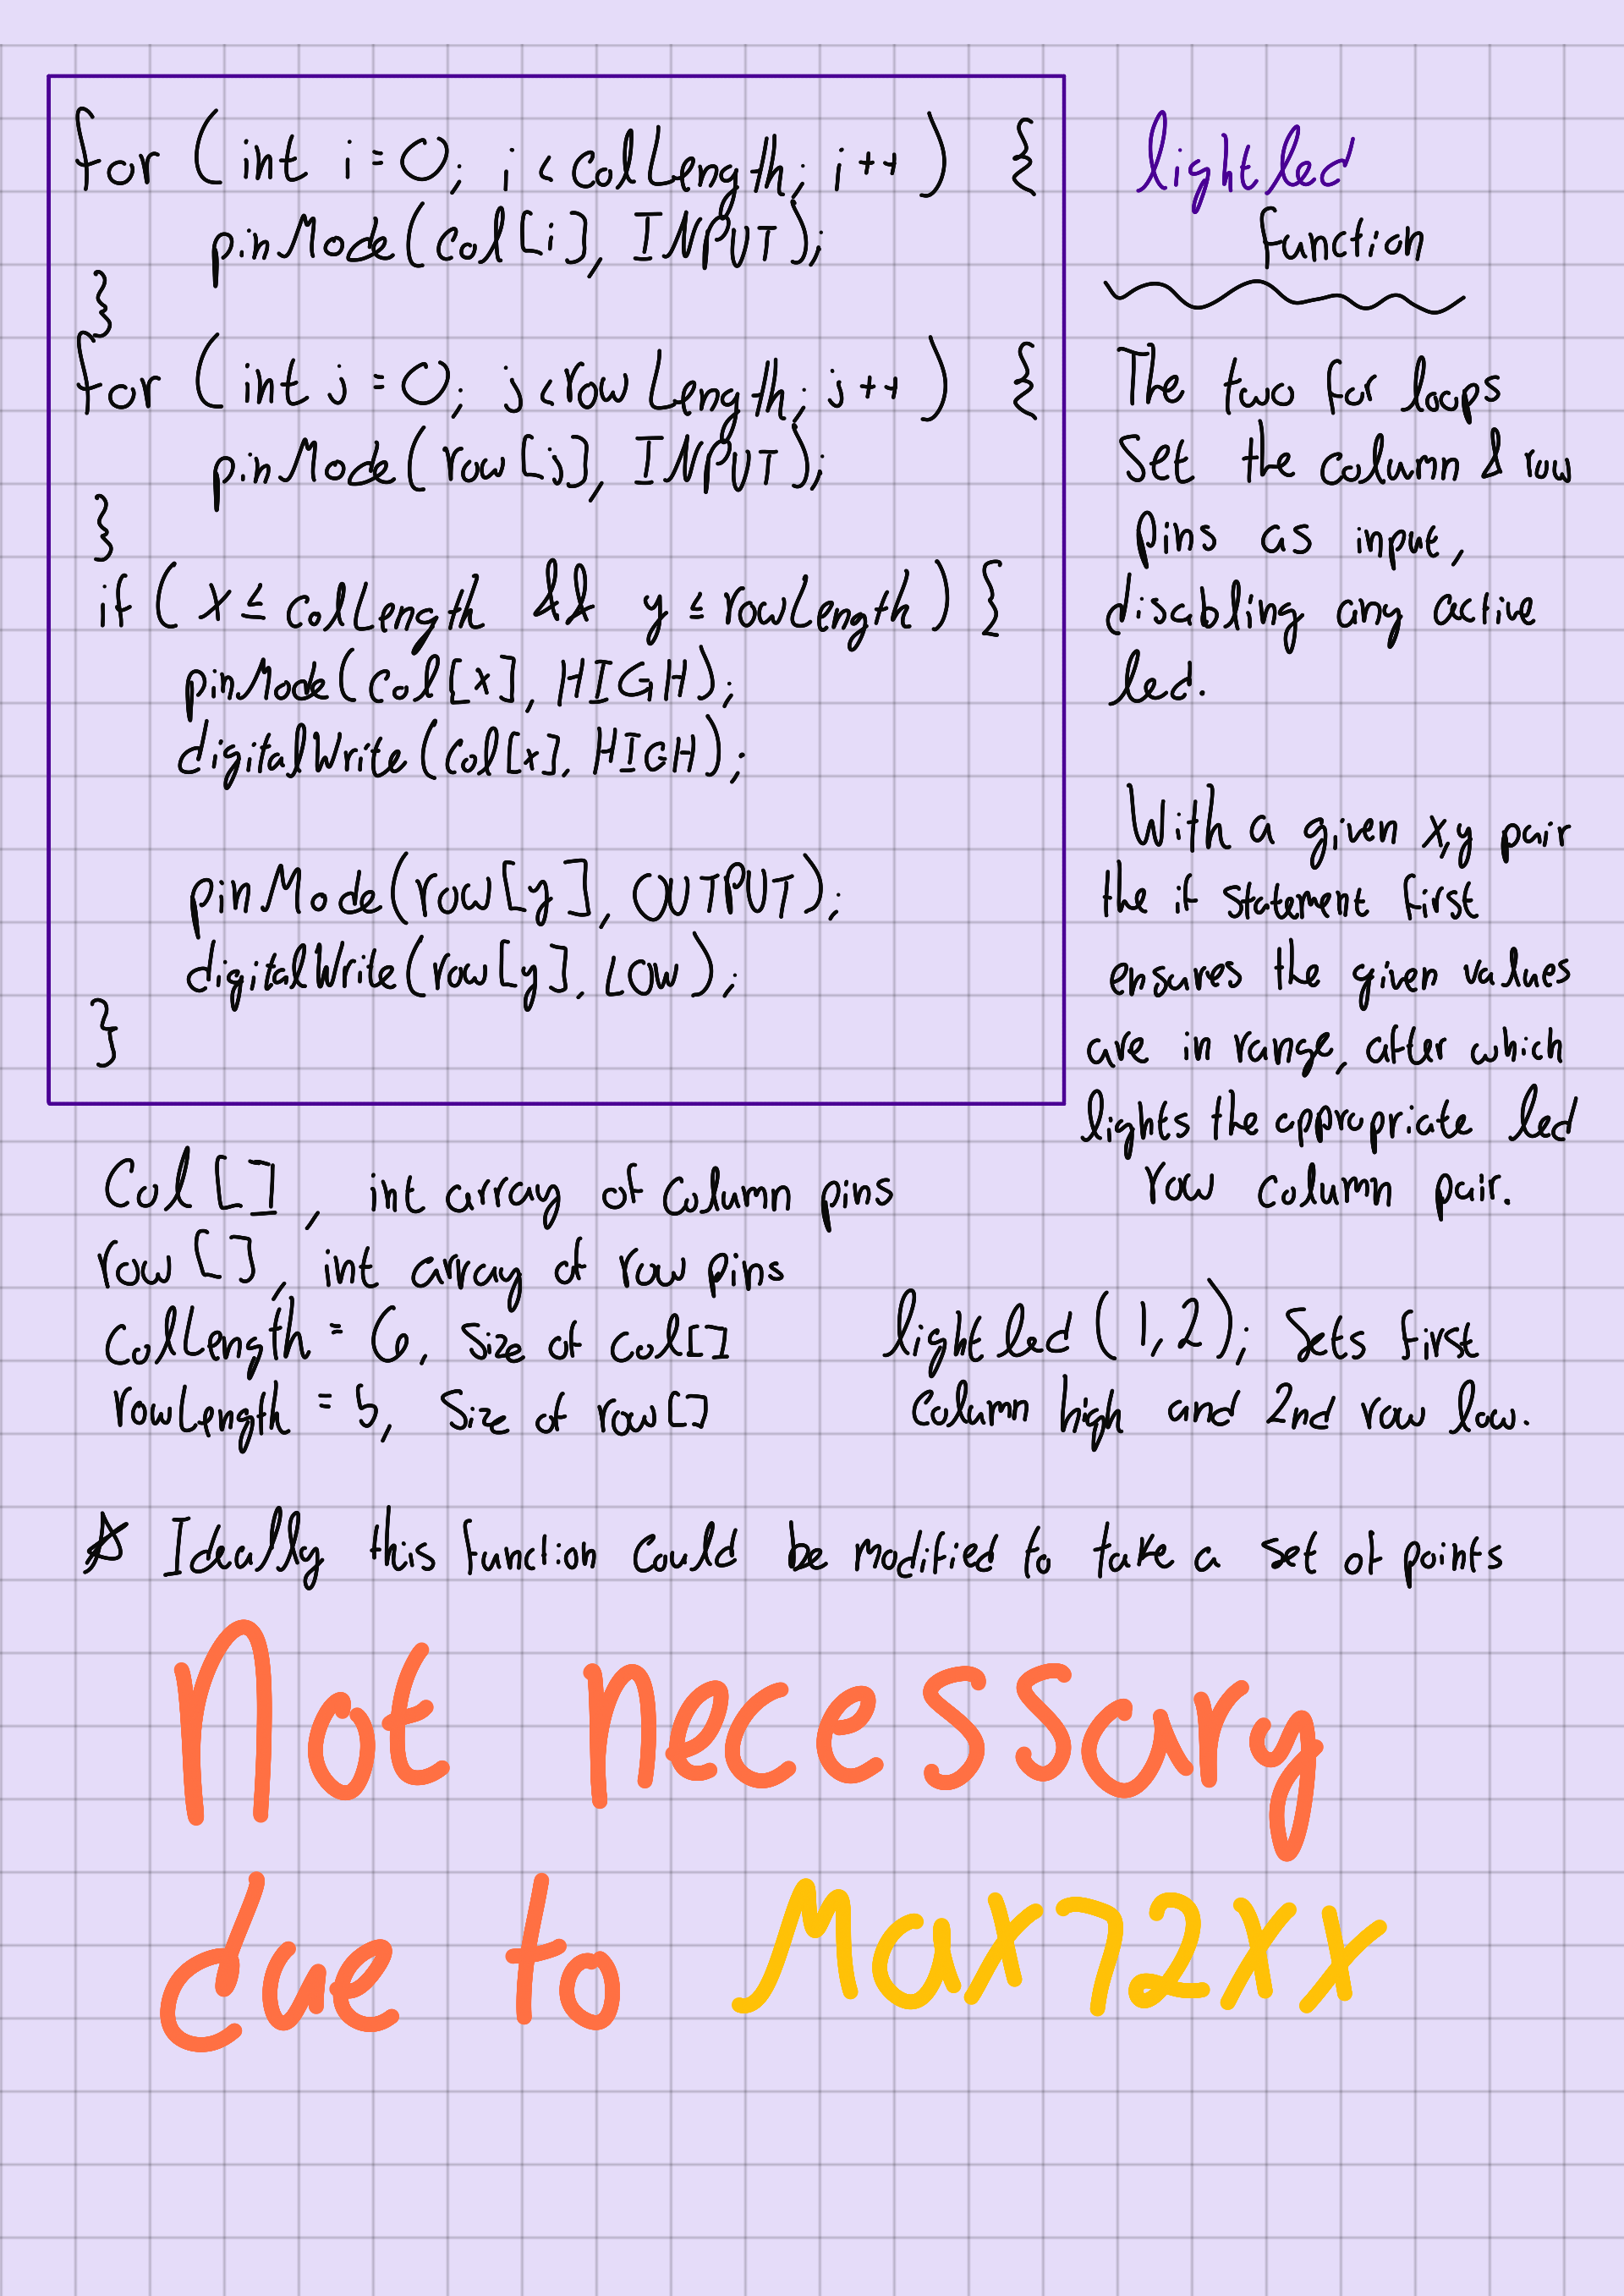 for (int i = 0; i < colLength; i++) {
pinMode(col[i], INPUT);
}
for (int j = 0; j < rowLength; j++) {
pinMode(row[j], INPUT);
}
if (x ≤ colLength && y ≤ rowLength) {
pinMode(col[x], HIGH);
digitalWrite(col[x], HIGH);
pinMode(row[y], OUTPUT);
digitalWrite(row[y], LOW);
}
lightled
function
The two for loops
Set the column & row
pins as input,
disabling any active
led.
With a given x,y pair
the if statement first
ensures the given values
are in range, after which
lights the appropriate led
row column pair.
Col[], int array of column pins
row[], int array of row pins
colLength = 6, size of col[]
rowLength = 5, size of row[]
lightled(1,2); Sets first
column high and 2nd row low.
☆ Ideally this function could be modified to take a set of points
Not necessary
due to Max72XX